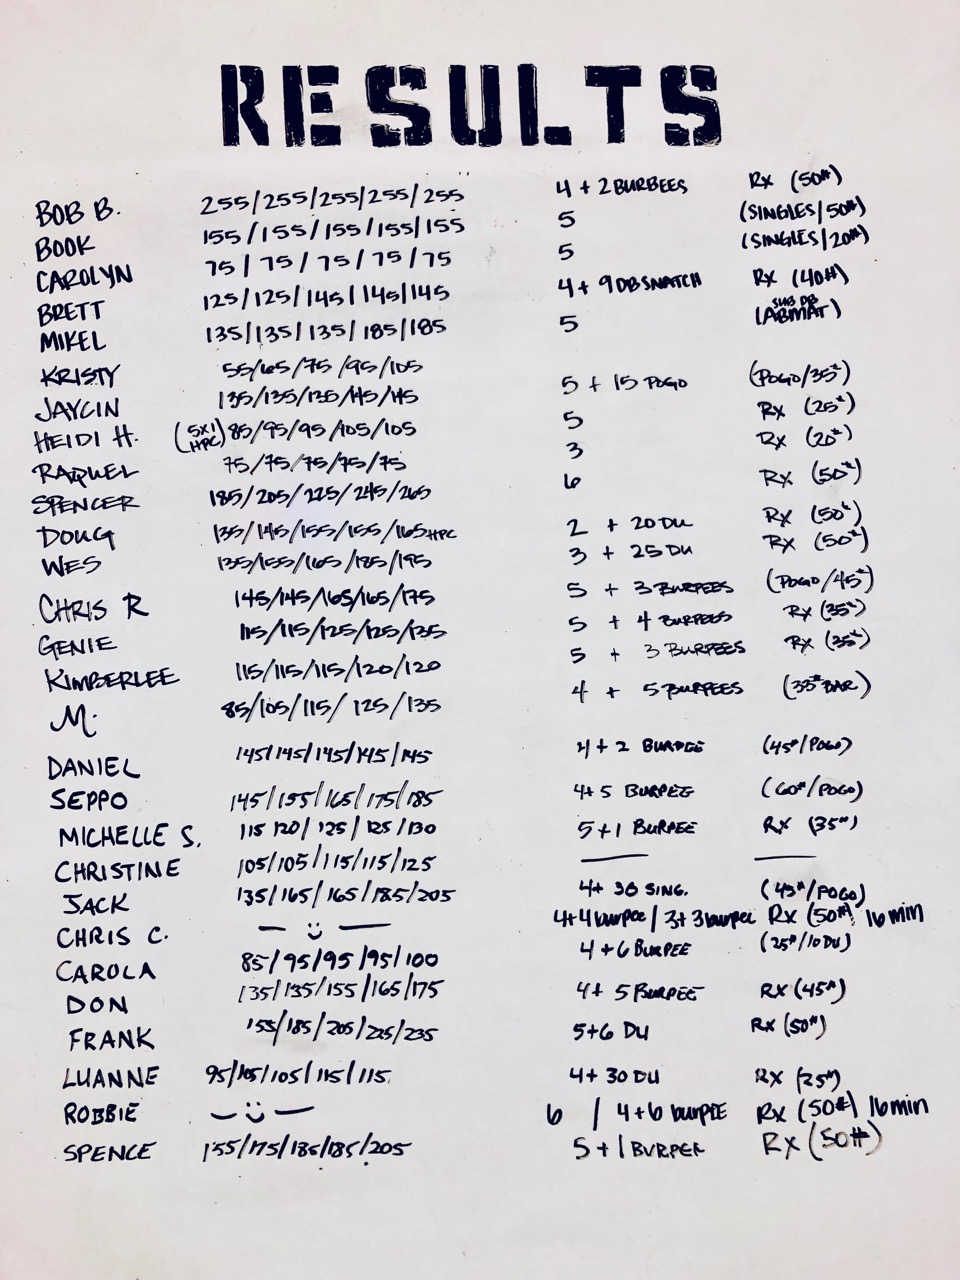 RESULTS
BOB B. 255/255/255/255/255 4 + 2 BURBEES RX (50#)
BOOK 155/155/155/155/155 5 (SINGLES/50#)
CAROLYN 75/75/75/75/75 5 (SINGLES/20#)
BRETT 125/125/145/145/145 4 + 9 DB SNATCH RX (40#)
MIKEL 135/135/135/185/185 5 (SUB DB ABMAT)
KRISTY 55/65/75/95/105 5 + 15 POGO (POGO/35#)
JAYCIN 135/135/135/145/145 5 RX (25#)
HEIDI H. (5X1 HPC) 85/95/95/105/105 3 RX (20#)
RAQUEL 75/75/75/75/75
SPENCER 185/205/225/245/265 6 RX (50#)
DOUG 135/145/155/155/165 HPC 2 + 20 DU RX (50#)
WES 135/155/165/185/195 3 + 25 DU RX (50#)
CHRIS R 145/145/165/165/175 5 + 3 BURPEES (POGO/45#)
GENIE 115/115/125/125/135 5 + 4 BURPEES RX (35#)
KIMBERLEE 115/115/115/120/120 5 + 3 BURPEES RX (35#)
M. 85/105/115/125/135 4 + 5 BURPEES (33# BAR)
DANIEL 145/145/145/145/145 4 + 2 BURPEE (45#/POGO)
SEPPO 145/155/165/175/185 4+ 5 BURPEE (60#/POGO)
MICHELLE S. 115 120/125/125/130 5+1 BURPEE RX (35#)
CHRISTINE 105/105/115/115/125
JACK 135/165/165/185/205 4+ 30 SING. (45#/POGO)
CHRIS C. 4+4 burpee / 3+3 burpee RX (50#) 16 min
CAROLA 85/95/95/95/100 4 + 6 BURPEE (25#/10 DU)
DON 135/135/155/165/175 4+ 5 BURPEE RX (45#)
FRANK 155/185/205/225/235 5+6 DU RX (50#)
LUANNE 95/105/105/115/115 4+ 30 DU RX (25#)
ROBBIE 6 / 4+6 burpee RX (50#) 16 min
SPENCE 155/175/185/185/205 5+1 BURPEE RX (50#)